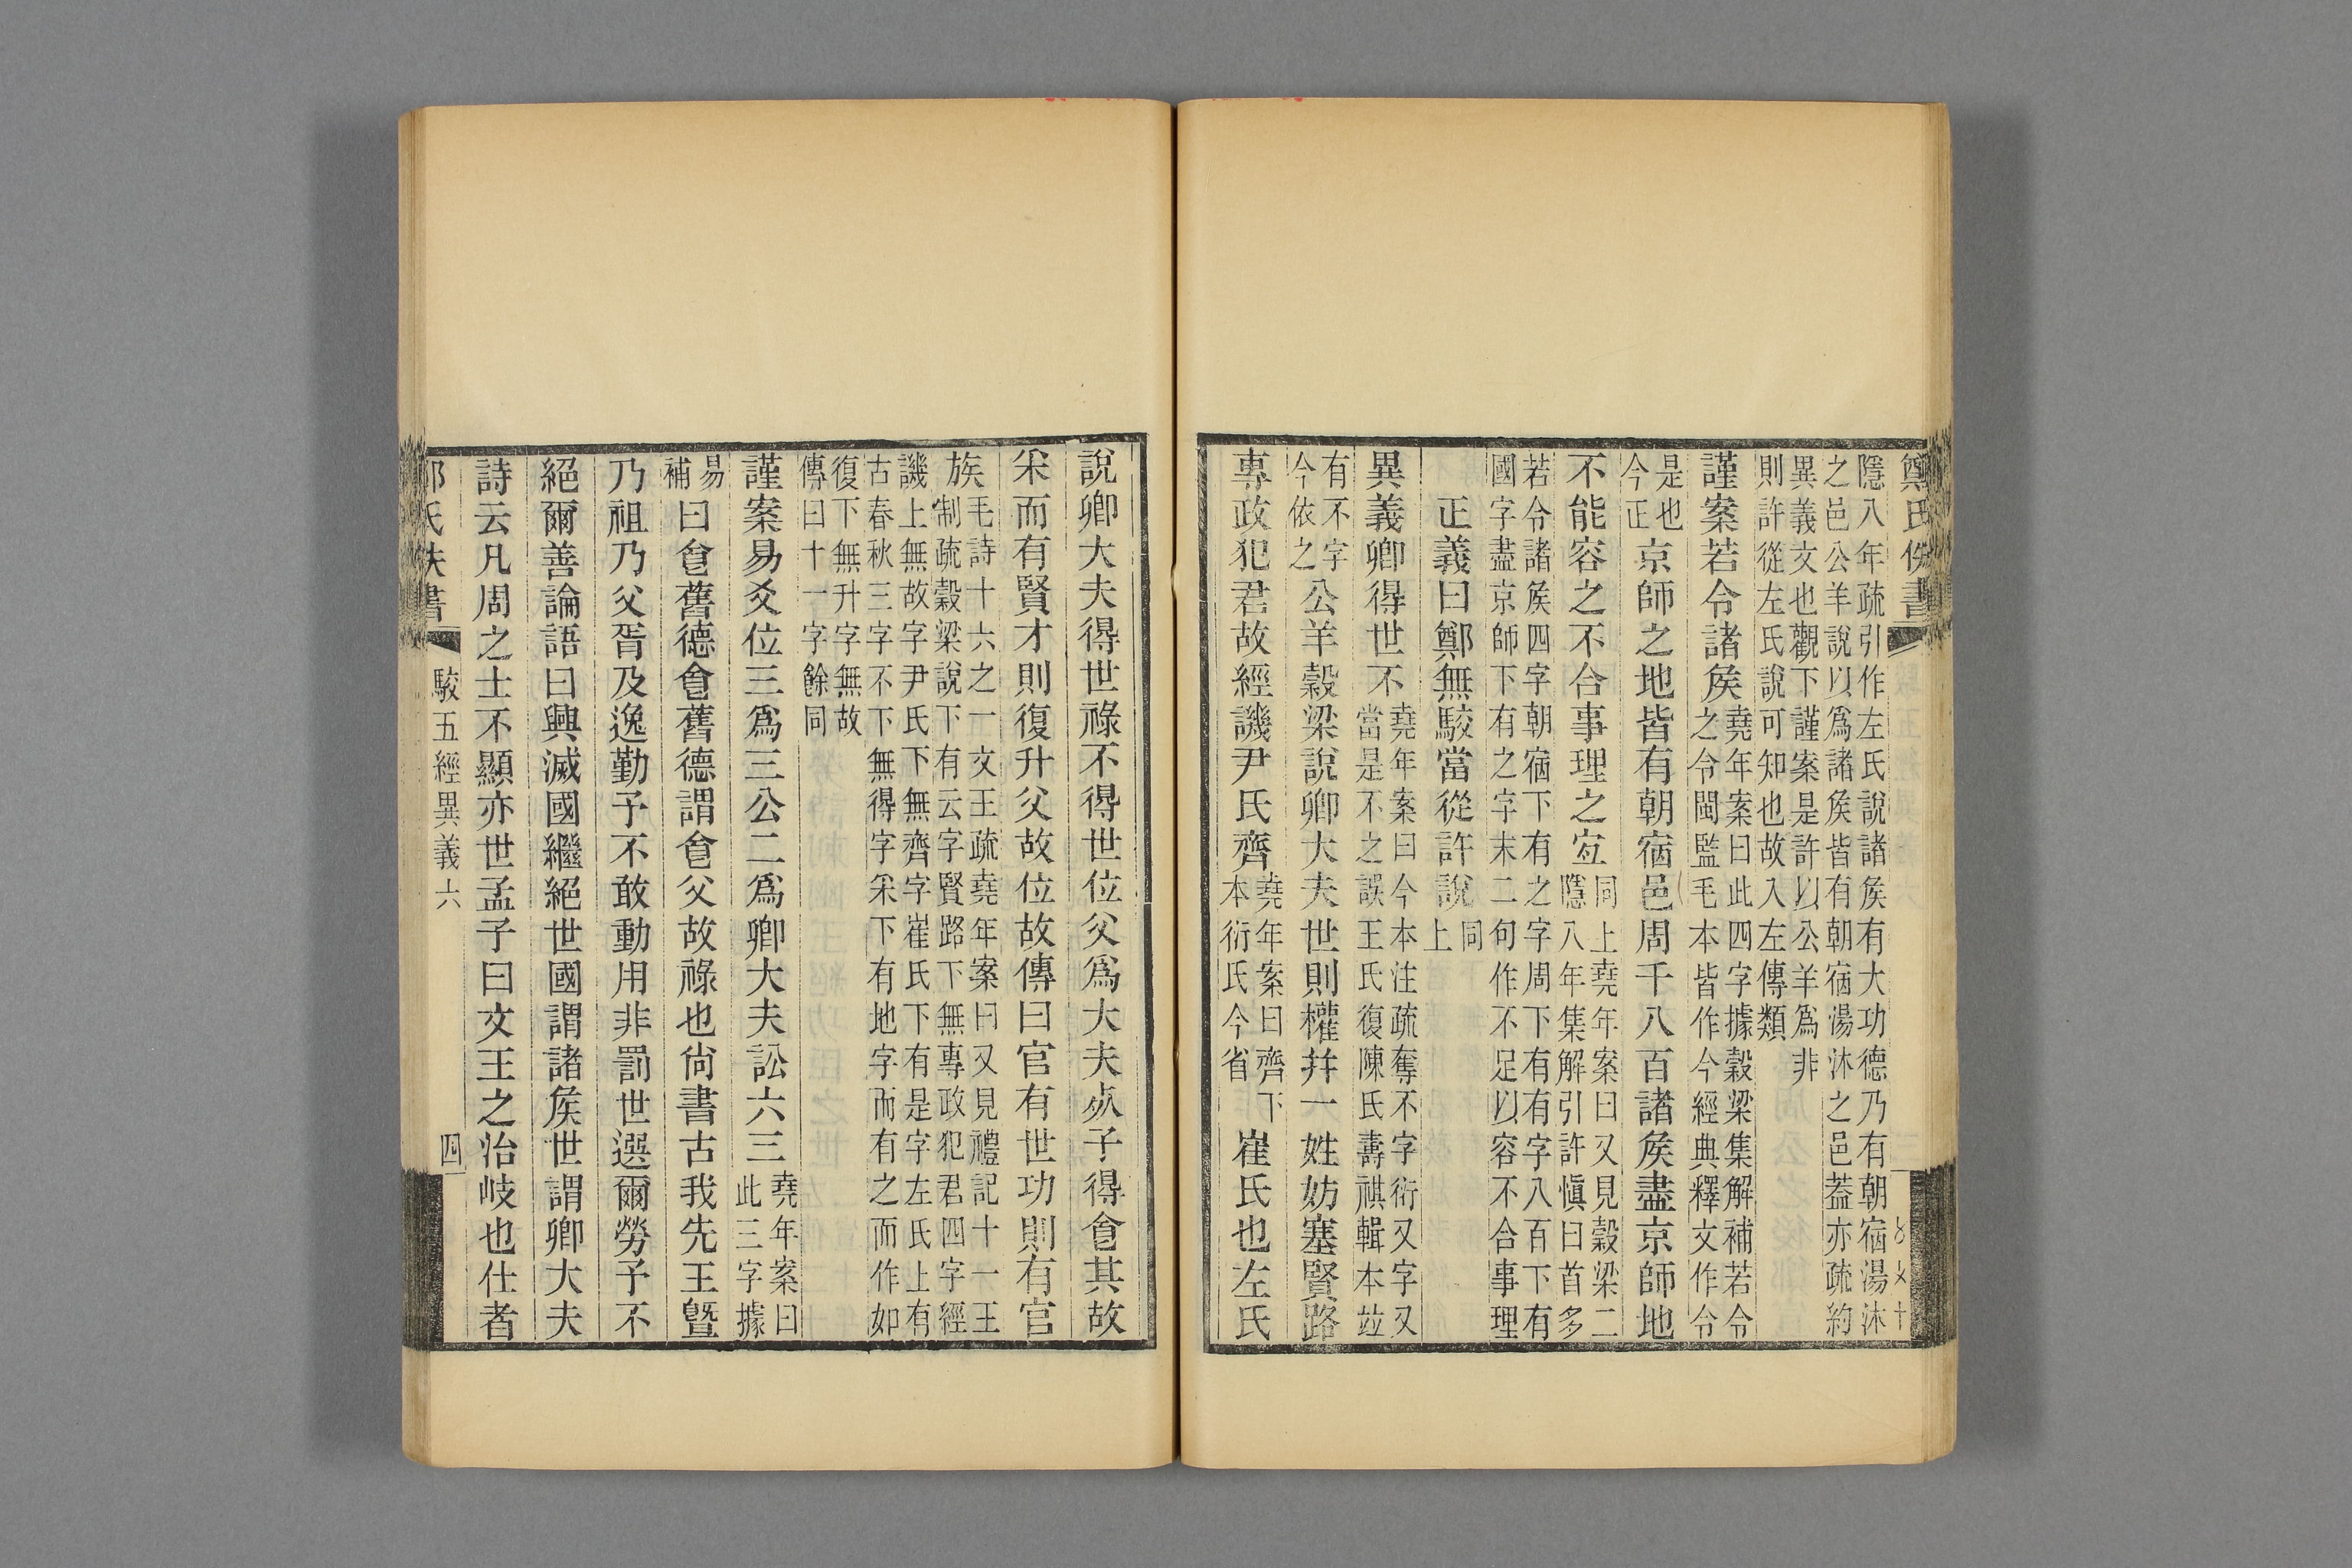 鄭氏佚書
隱八年疏引作左氏說諸矦有大功德乃有朝宿湯沐
之邑公羊說以爲諸矦皆有朝宿湯沐之邑葢亦疏約
異義文也觀下謹案是許以公羊爲非
則許從左氏說可知也故入左傳類
謹案若令諸矦堯年案曰此四字據穀梁集解補若令
之令閩監毛本皆作今經典釋文作令
是也
今正京師之地皆有朝宿邑周千八百諸矦盡京師地
不能容之不合事理之宐同上堯年案曰又見穀梁二
隱八年集解引許愼曰首多
若令諸矦四字朝宿下有之字周下有有字八百下有
國字盡京師下有之字末二句作不足以容不合事理
正義曰鄭無駮當從許說同
上
異義卿得世不堯年案曰今本注疏奪不字衍又字又
當是不之誤王氏復陳氏壽祺輯本竝
有不字
今依之公羊穀梁說卿大夫世則權幷一姓妨塞賢路
專政犯君故經譏尹氏齊堯年案曰齊下
本衍氏今省崔氏也左氏
說卿大夫得世祿不得世位父爲大夫𣦸子得𠊊其故
采而有賢才則復升父故位故傳曰官有世功則有官
族毛詩十六之一文王疏堯年案曰又見禮記十一王
制疏穀梁說下有云字賢路下無專政犯君四字經
譏上無故字尹氏下無齊字崔氏下有是字左氏上有
古春秋三字不下無得字采下有地字而有之而作如
復下無升字無故
傳曰十一字餘同
謹案易爻位三爲三公二爲卿大夫訟六三堯年案曰
此三字據
易
補曰𠊊舊德𠊊舊德謂𠊊父故祿也尙書古我先王曁
乃祖乃父胥及逸勤予不敢動用非罰世選爾勞予不
絕爾善論語曰興滅國繼絕世國謂諸矦世謂卿大夫
詩云凡周之士不顯亦世孟子曰文王之治岐也仕者
駮五經異義六
四